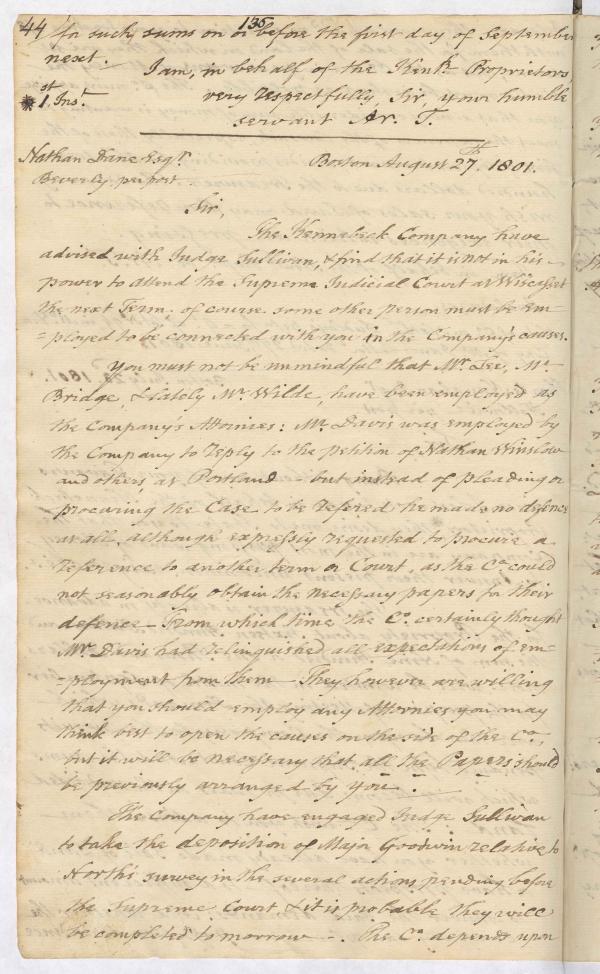 44
135
for such sums on or before the first day of September
next.
I am, in behalf of the Kenk. Proprietors
* 1st Inst.
very respectfully, Sir, your humble
servant Ar. T.
Nathan Dane Esqr.
Boston August 27th. 1801.
Beverly, per post.
Sir,
The Kennebeck Company have
advised with Judge Sullivan, & find that it is not in his
power to attend the Supreme Judicial Court at Wiscasset
the next Term. of course some other person must be em-
=ployed to be connected with you in the Company's causes.
You must not be unmindful that Mr. Lee, Mr.
Bridge, & lately Mr. Wilde, have been employed as
the Company's Attornies: Mr. Davis was employed by
the Company to reply to the petition of Nathan Winslow
and others, at Portland - but instead of pleading or
procuring the Case to be refered he made no defence
at all, although expressly requested to procure a
reference to another term or Court, as the Co. could
not seasonably obtain the necessary papers for their
defence - From which time the Co. certainly thought
Mr. Davis had relinquished all expectations of em-
=ployment from them - They however are willing
that you should employ any Attornies you may
think best to open the causes on the side of the Co.,
but it will be necessary that all the Papers should
be previously arranged by you.
The Company have engaged Judge Sullivan
to take the deposition of Major Goodwin relative to
North's survey in the several actions pending before
the Supreme Court, & it is probable they will
be completed tomorrow -. The Co. depends upon